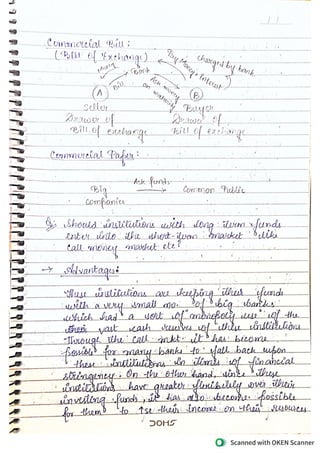 Commercial Bill:
(Bill of Exchange)
Pay Money + Interest
charged by bank
Money
Bank
Bill
Ask money
on maturity
A
B
Seller
Buyer
Drawer of
Drawee of
Bill of exchange
Bill of exchange
Commercial Paper:
Ask funds
Big
Common Public
Companies
Q: Should institutions with long term funds
enter into the short-term market like
call money market etc?
→ Advantage:
These institutions are keeping their funds
with a very small no. of big banks
which had a sort of monopoly use of the
vast cash reserves of these institutions
Through the call mkt. it has become
possible for many banks to fall back upon
these institutions in times of financial
stringency. On the other hand, since these
institutions have greater flexibility over their
investing funds, it has also become possible
for them to ↑se their Income on their resources
DOMS
Scanned with OKEN Scanner